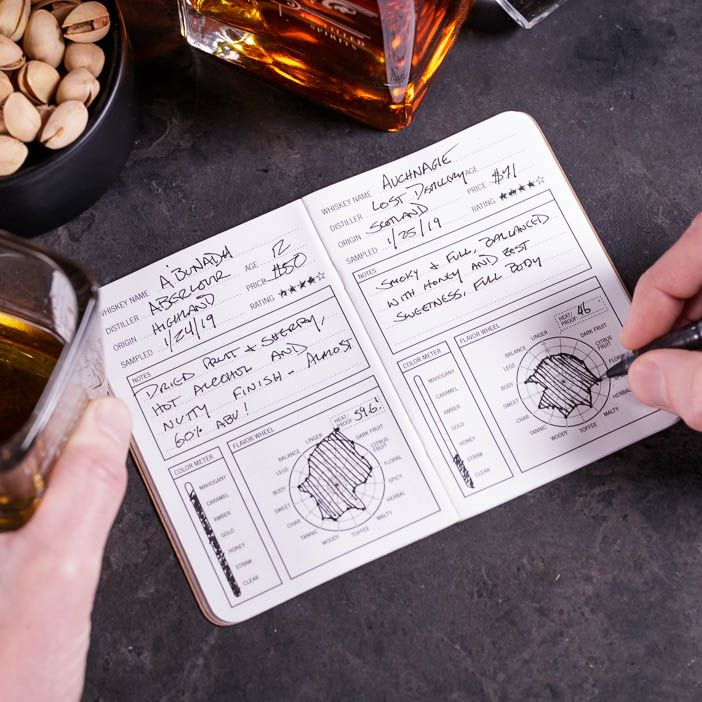 SPIRITS
WHISKEY NAME A'BUNADH
DISTILLER ABERLOUR AGE 12
ORIGIN HIGHLAND PRICE $50
SAMPLED 1/24/19 RATING ★★★★☆
NOTES
DRIED FRUIT & SHERRY,
HOT ALCOHOL AND
NUTTY FINISH - ALMOST
60% ABV!
COLOR METER
MAHOGANY
CARAMEL
AMBER
GOLD
HONEY
STRAW
CLEAR
FLAVOR WHEEL
HEAT/PROOF 59.6!
LINGER
DARK FRUIT
CITRUS FRUIT
FLORAL
SPICY
HERBAL
MALTY
TOFFEE
WOODY
TANNIC
CHAR
SWEET
BODY
LEGS
BALANCE
WHISKEY NAME AUCHNAGIE
DISTILLER LOST DISTILLERY AGE
ORIGIN SCOTLAND PRICE $71
SAMPLED 1/25/19 RATING ★★★★☆
NOTES
SMOKY & FULL, BALLANCED
WITH HONEY AND BEST
SWEETNESS, FULL BODY
COLOR METER
MAHOGANY
CARAMEL
AMBER
GOLD
HONEY
STRAW
CLEAR
FLAVOR WHEEL
HEAT/PROOF 46
LINGER
DARK FRUIT
CITRUS FRUIT
HERBAL
MALTY
TOFFEE
WOODY
TANNIC
CHAR
SWEET
BODY
LEGS
BALANCE